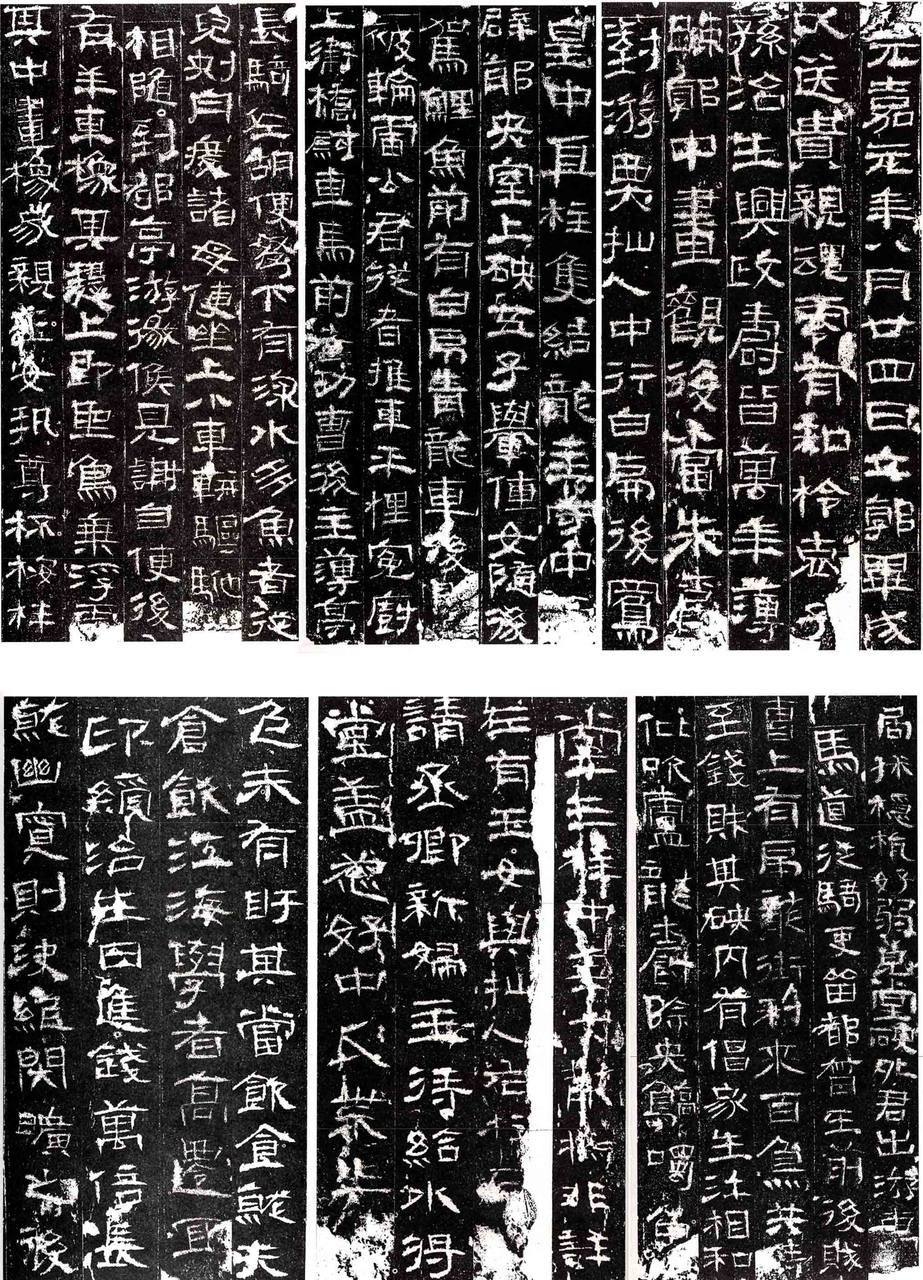 元嘉元年八月廿四日立郭畢成
以送貴親魂零有知柃哀子
孫治生興政壽皆萬年薄
踈郭中畫觀後當朱爵
對游㚓抽人中行白虎後鳳
皇中直柱隻結龍主守中
辟邪央室上硖五子轝僮女隨後
駕鯉魚前有白虎青龍車後
被輪雷公君從者推車平梩冤厨
上衛橋尉車馬前者功曹後主簿亭
長騎佐胡使弩下有深水多魚者從
兒刺舟渡諸母使坐上小車軿驅馳
相隨到都亭游徼候見謝自便後
有羊車橡其上即聖鳥乘浮雲
其中畫橡家親玉女執尊杯桉柈
局抹穩杬好弱皃堂硖外君出游車
馬道從騎吏留都督在前後賊
曹上有虎龍銜利來百鳥共持
至錢財其硖內有倡家生汙相和
仳吹廬龍雀除央鶴噣魚
堂三柱中直龍非詳
左有玉女與抽人右柱
請丞卿新婦主待給水將
堂蓋好中瓜葉
色未有盱其當飲食就夫
倉飲江海學者高遷宜
印綬治生日進錢萬倍長
就幽冥則決絕閉曠之後